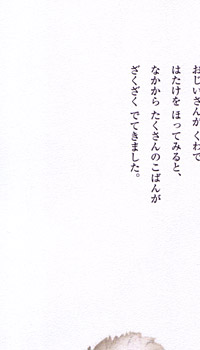 おじいさんが くわで
はたけを ほってみると、
なかから たくさんのこばんが
ざくざく でてきました。